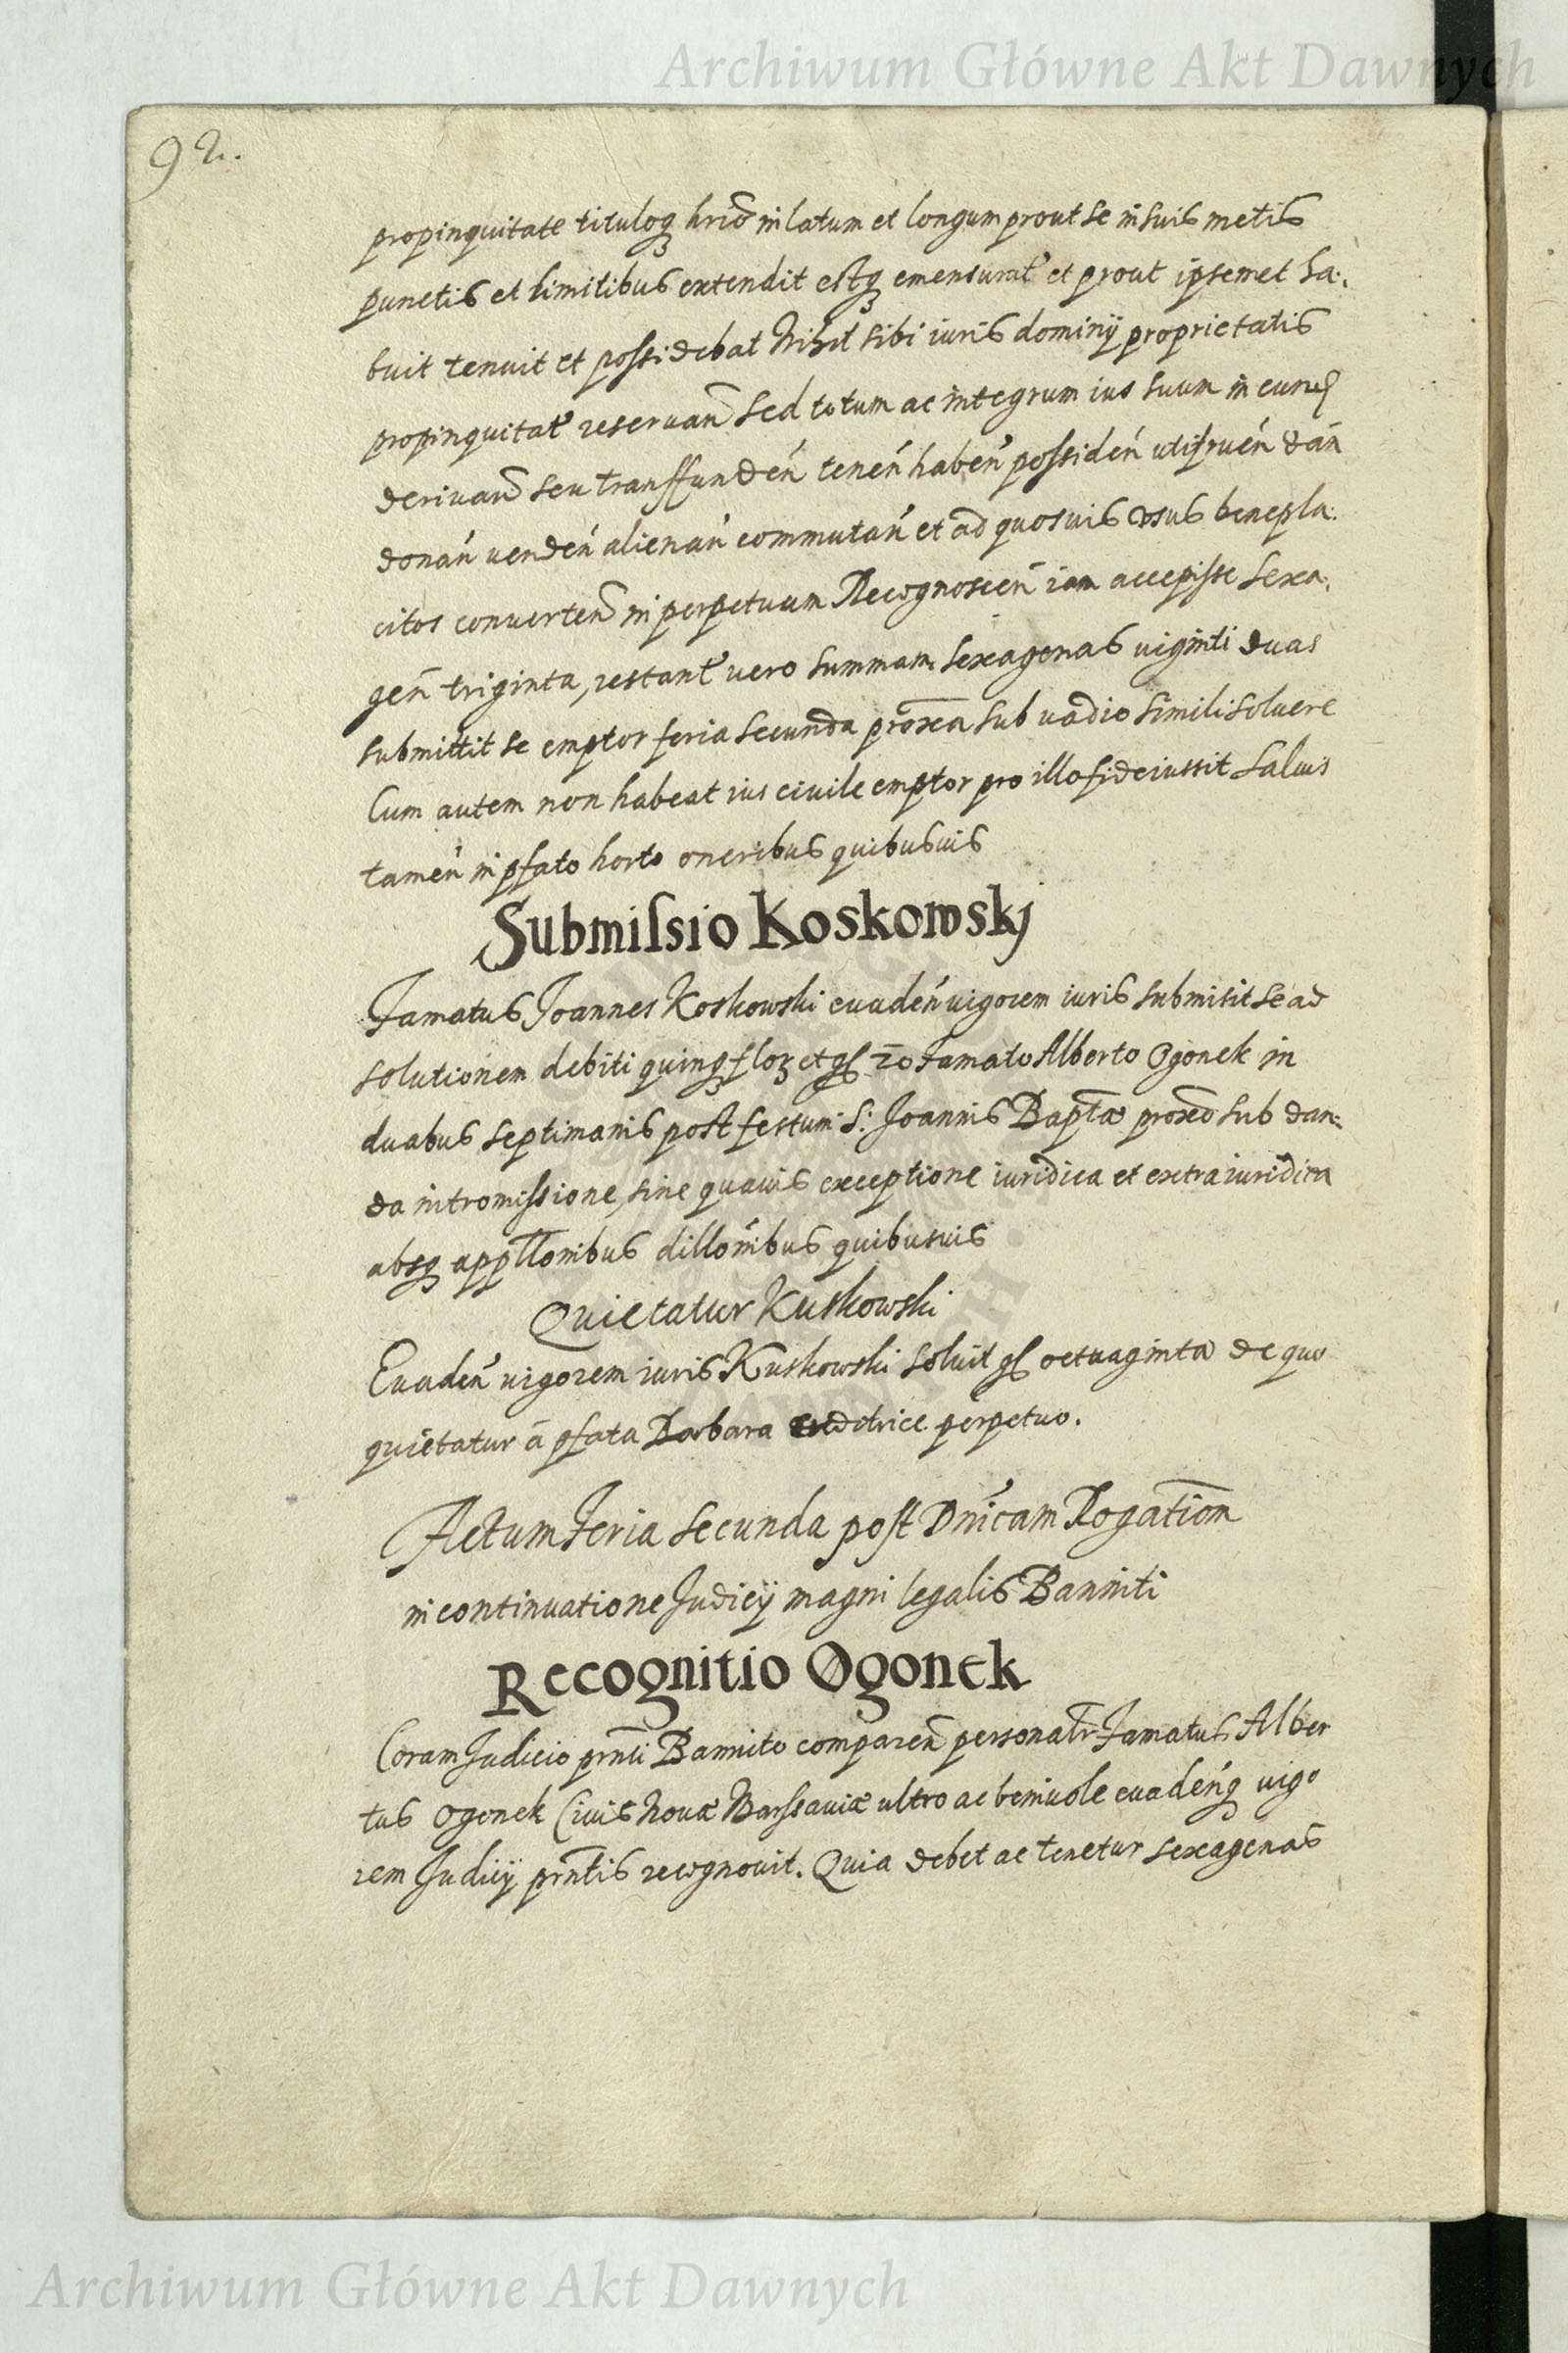 Archiwum Główne Akt Dawnych
92.
propinquitate tituloq hrio in latum et longum prout se in suis metis
punctis et limitibus extendit estq emensurat et prout ipsemet ha:
buit tenuit et possidebat Nihil sibi iuris dominij proprietatis
propinquitat reseruan sed totum ac integrum ius suum in eund
deriuan seu transffunden tenen haben possiden utifruen dan
donan uenden alienan commutan et ad quosuis vsus benepla:
citos conuerten in perpetuum Recognoscen iam accepisse sexa:
gen triginta, restant vero summam sexagenas uiginti duas
submittit se emptor feria secunda proxa sub uadio simili soluere
Cum autem non habeat ius ciuile emptor pro illo fideiussit Saluis
tamen in pfato horto oneribus quibusuis
Submissio Koskowskj
Famatus Joannes Koskowski euaden uigorem iuris submisit se ad
solutionem debiti quinq flor et gs 20 Famato Alberto Ogonek in
duabus septimanis post festum S: Joannis Baptæ proxo sub dan:
da intromissione, sine quauis exceptione iuridica et extraiuridica
absq appllonibus dillonibus quibusuis
Quietatur Kuskowski
Euaden uigorem iuris Kuskowski soluit gs octuaginta de quo
quietatur á pfata Barbara creditrice perpetuo.
Actum Feria secunda post Dnicam Rogation
in continuatione Judicij magni legalis Banniti
Recognitio Ogonek
Coram Judicio prnti Bannito comparen personalr Famatus Alber
tus Ogonek Ciuis Nouæ Warssauiæ ultro ac beniuole euadenq uigo
rem Judicij prntis recognouit. Quia debet ac tenetur sexagenas
Archiwum Główne Akt Dawnych